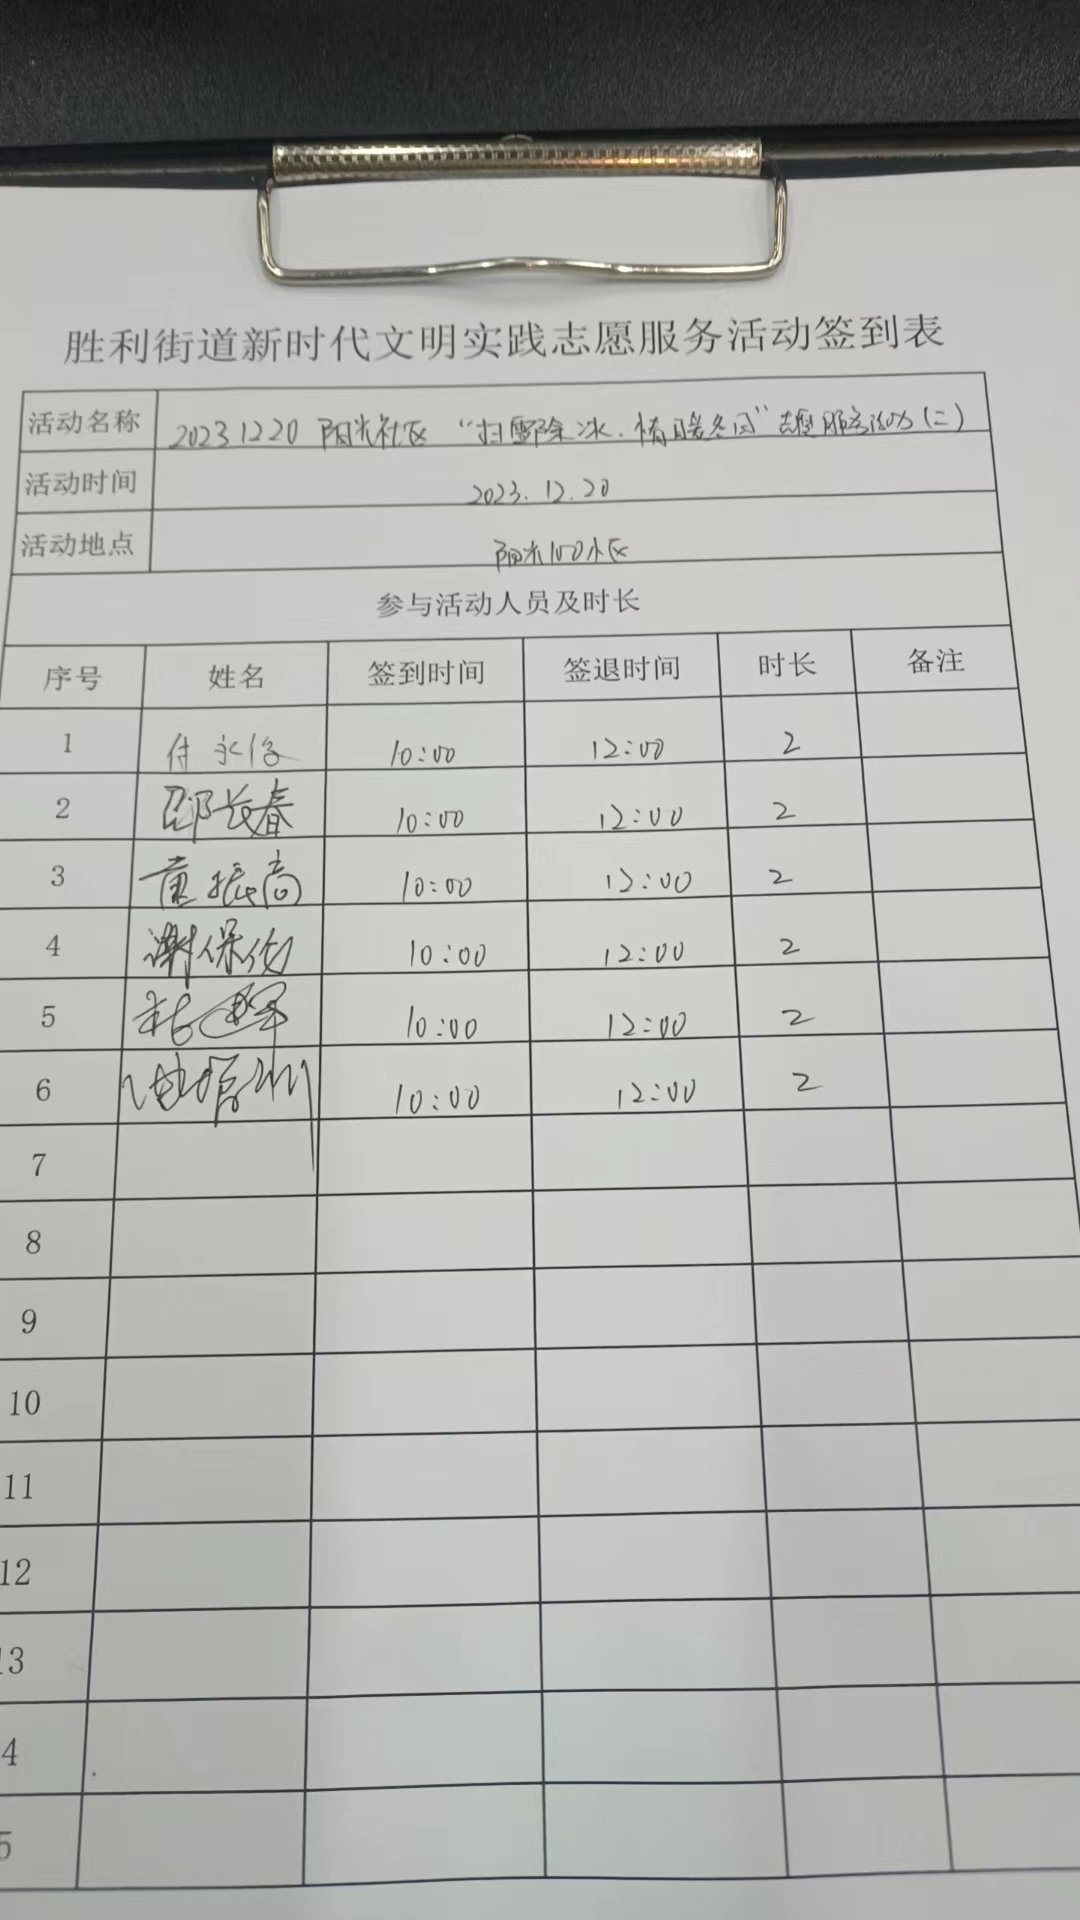 胜利街道新时代文明实践志愿服务活动签到表
活动名称 20231220 阳光社区 “扫雪除冰、情暖冬日”志愿服务活动(二)
活动时间 2023.12.20
活动地点 阳光100小区
参与活动人员及时长
序号 姓名 签到时间 签退时间 时长 备注
1 付永俊 10:00 12:00 2
2 邵长春 10:00 12:00 2
3 董振高 10:00 12:00 2
4 谢保伦 10:00 12:00 2
5 10:00 12:00 2
6 10:00 12:00 2
7
8
9
10
11
12
13
4
5